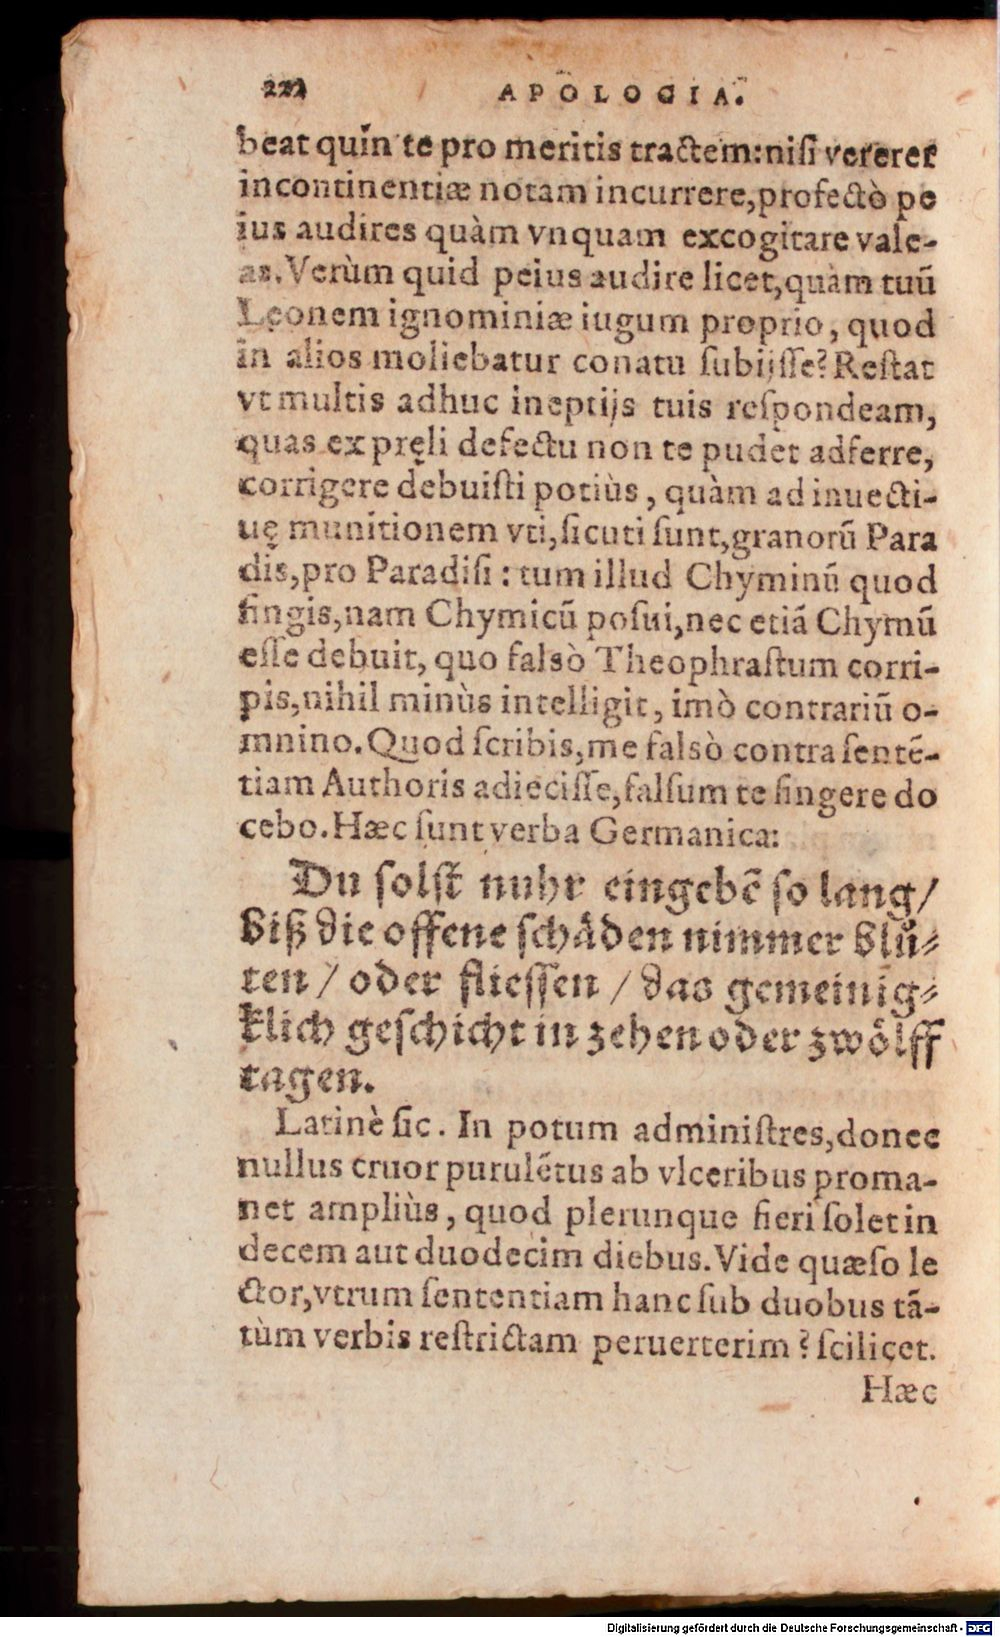 222 APOLOGIA.
beat quin te pro meritis tractem: nisi vererer
incontinentiæ notam incurrere, profectò pe
ius audires quàm vnquam excogitare vale-
as. Verùm quid peius audire licet, quàm tuũ
Leonem ignominiæ iugum proprio, quod
in alios moliebatur conatu subijsse? Restat
vt multis adhuc ineptijs tuis respondeam,
quas ex pręli defectu non te pudet adferre,
corrigere debuisti potiùs, quàm ad inuecti-
uę munitionem vti, sicuti sunt, granorũ Para
dis, pro Paradisi: tum illud Chyminũ quod
fingis, nam Chymicũ posui, nec etiã Chymũ
esse debuit, quo falsò Theophrastum corri-
pis, nihil minùs intelligit, imò contrariũ o-
mnino. Quod scribis, me falsò contra sentẽ-
tiam Authoris adiecisse, falsum te fingere do
cebo. Hæc sunt verba Germanica:
Du solst nuhr eingebẽ so lang/
biß die offene schäden nimmer blů-
ten / oder fliessen / das gemeinig-
klich geschicht in zehen oder zwölff
tagen.
Latinè sic. In potum administres, donec
nullus cruor purulẽtus ab vlceribus proma-
net ampliùs, quod plerunque fieri solet in
decem aut duodecim diebus. Vide quæso le
ctor, vtrum sententiam hanc sub duobus tã-
tùm verbis restrictam peruerterim? scilicet.
Hæc
Digitalisierung gefördert durch die Deutsche Forschungsgemeinschaft - DFG